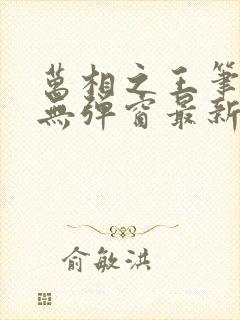 萬相之王筆
無彈窗最新
俞敏洪